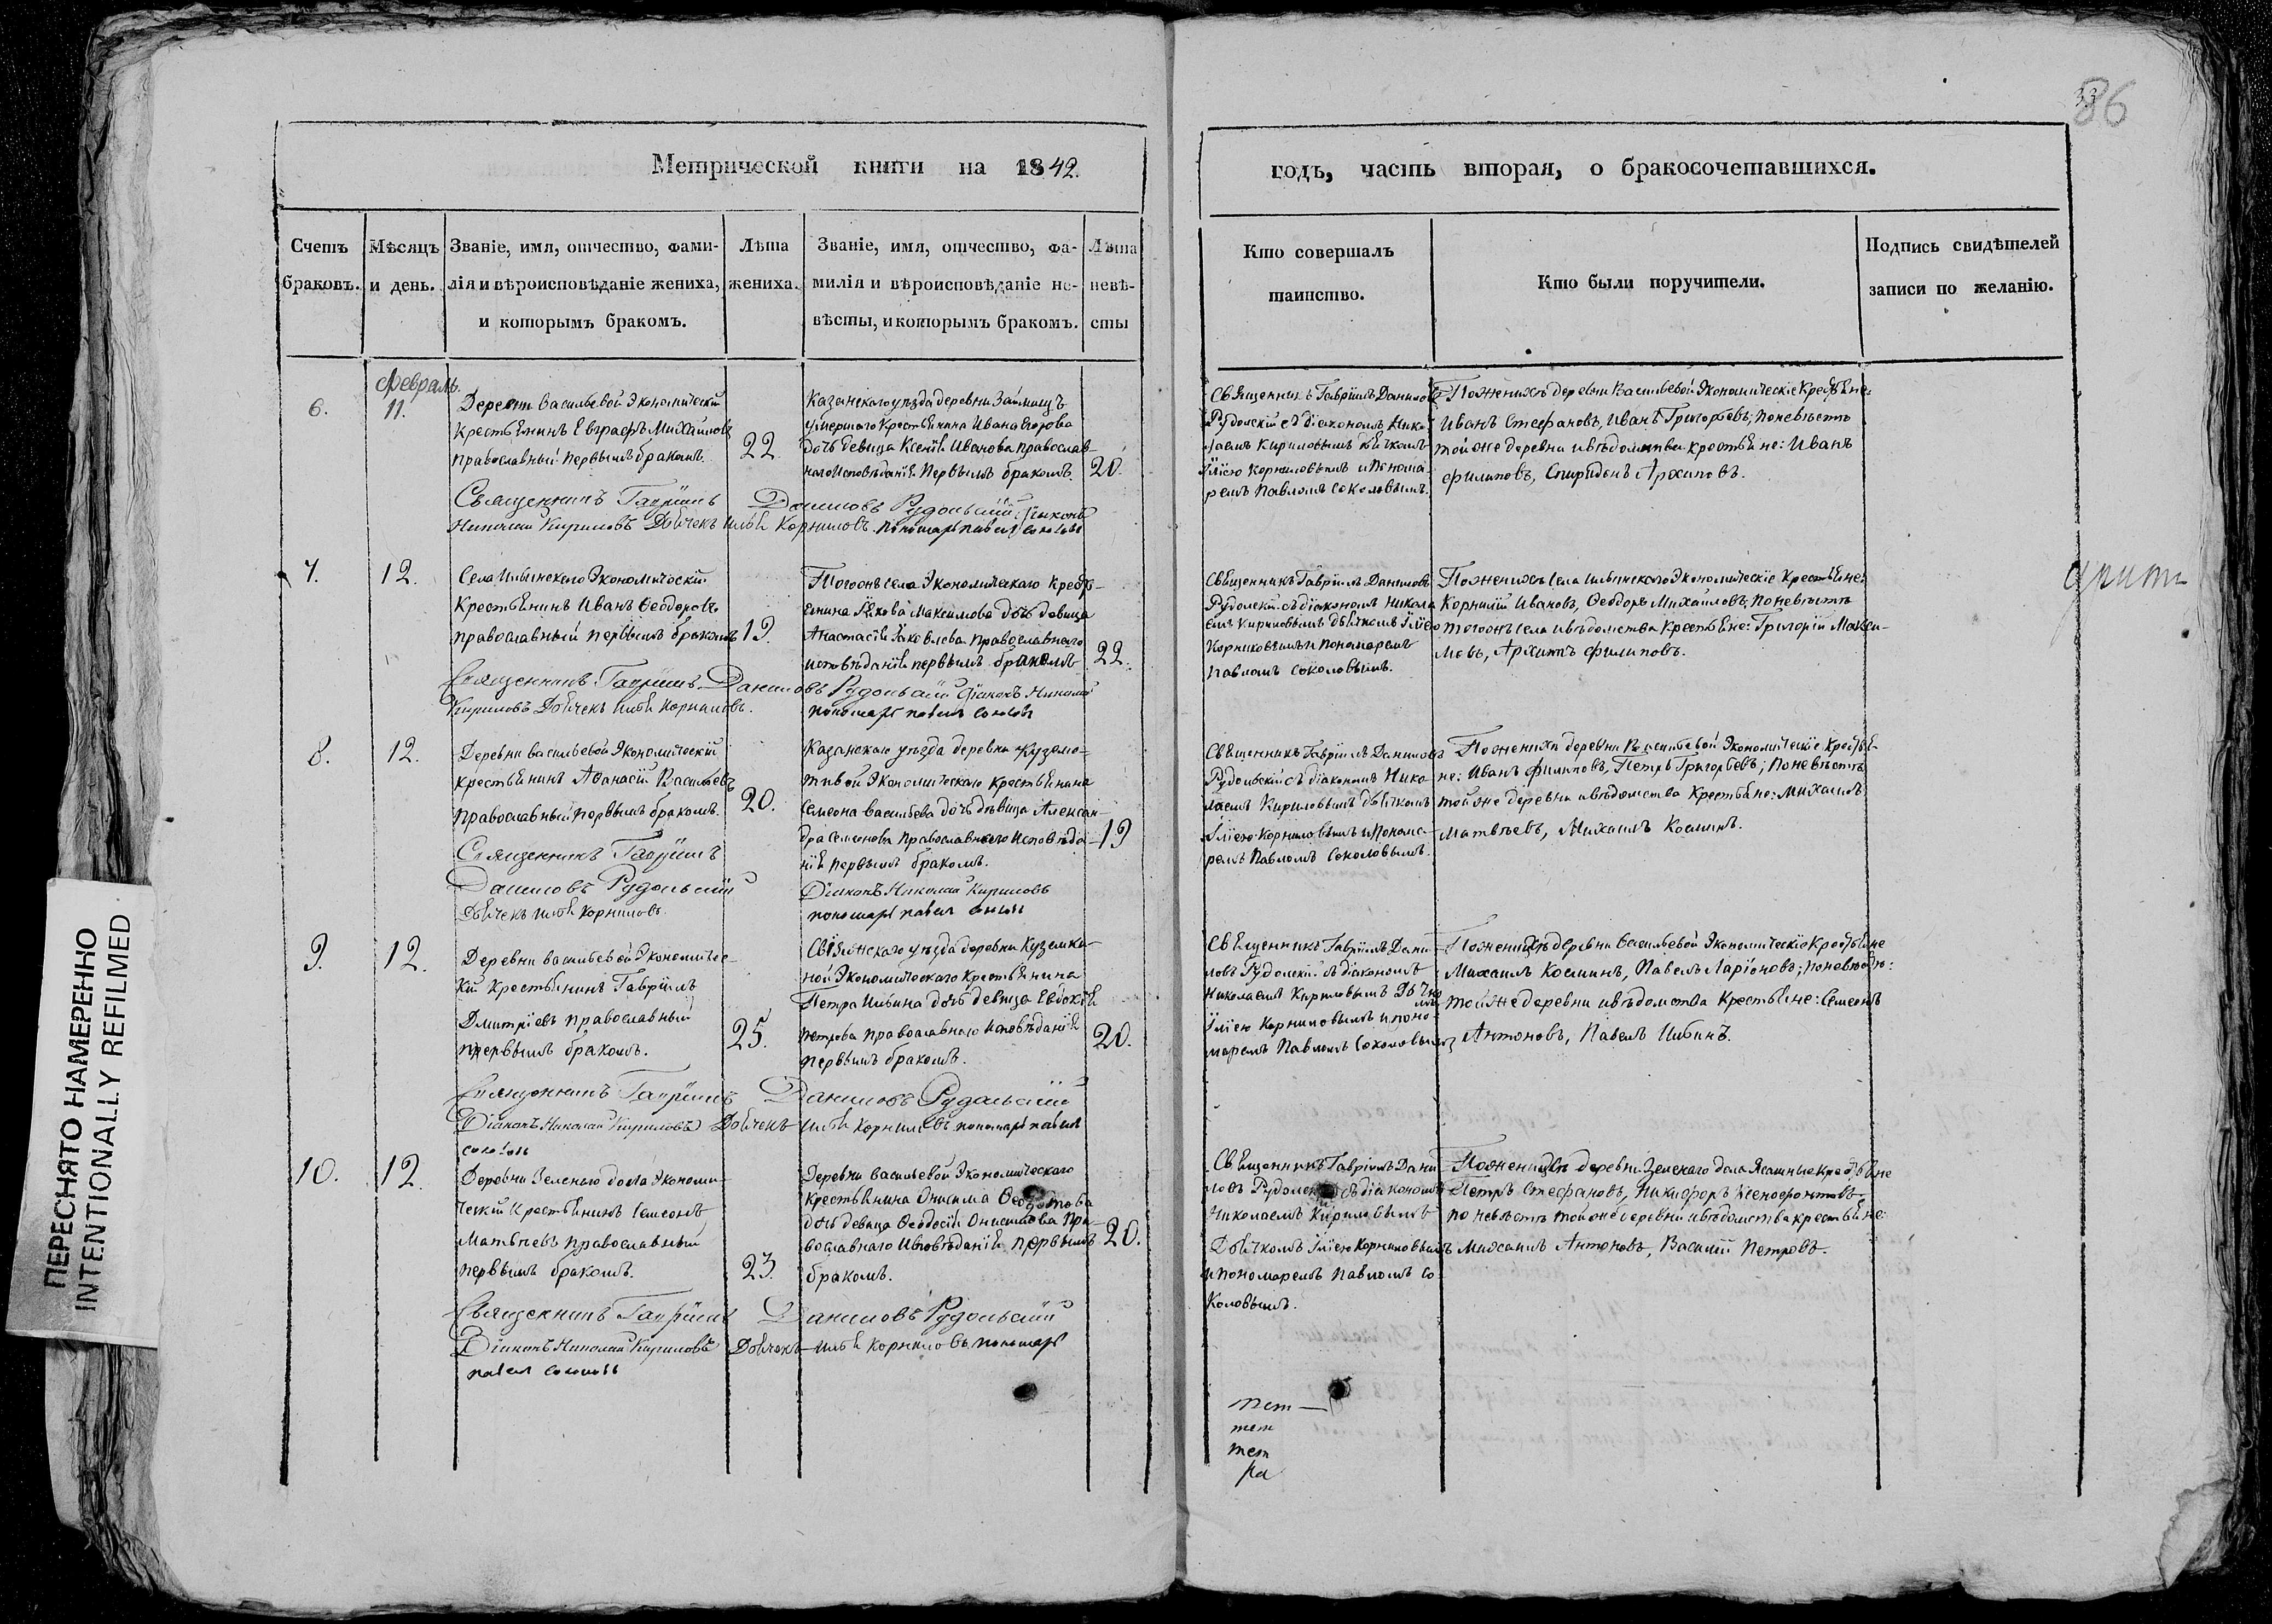 86
33
Метрической книги на 1842.
годъ, часть вторая, о бракосочетавшихся.
Счетъ
браковъ.
Мѣсяцъ
и день.
Званіе, имя, отчество, фами-
лія и вѣроисповѣданіе жениха,
и которымъ бракомъ.
Лѣта
жениха.
Званіе, имя, отчество, фа-
милія и вѣроисповѣданіе не-
вѣсты, и которымъ бракомъ.
Лѣта
невѣ-
сты
Кто совершалъ
таинство.
Кто были поручители.
Подпись свидѣтелей
записи по желанію.
6.
Февраль.
11.
Деревни Васильевой Экономическій
крестьянинъ Евграфъ Михайловъ
православный первымъ бракомъ.
22
Казанскаго уѣзда деревни Займищъ
умершаго крестьянина Ивана
дочь девица Ксенія Иванова православ-
наго исповѣданія первымъ бракомъ.
20.
Священникъ Гавріилъ Даниловъ
Рудольскій съ діакономъ Нико-
лаемъ Кириловымъ дьячкомъ
Іліею Корниловымъ и понома-
ремъ Павломъ Соколовымъ.
По женихѣ деревни Васильевой Экономическіе крестьяне:
Иванъ Стефановъ, Иванъ Григорьевъ; по невѣстѣ
той же деревни и вѣдомства крестьяне: Иванъ
Филиповъ, Спиридонъ Архиповъ.
Священникъ Гавріилъ Даниловъ Рудольскій Діаконъ
Николай Кириловъ Дьячекъ Илья Корниловъ. пономарь Павел Соколовъ
7.
12.
Села Ильинскаго Экономическій
крестьянинъ Иванъ Ѳеодоровъ
православный первымъ бракомъ
19.
Тогожъ села Экономическаго кресть-
янина Якова Максимова дочь девица
Анастасія Яковлева православнаго
исповѣданія первымъ бракомъ
22.
Священникъ Гавріилъ Даниловъ
Рудольскій съ діакономъ Никола
емъ Кириловымъ дьячкомъ Іліею
Корниловымъ и пономаремъ
Павломъ Соколовымъ.
По женихѣ села Ильинскаго Экономическіе крестьяне:
Корнилій Ивановъ, Ѳеодоръ Михайловъ; по невѣстѣ
тогожъ села и вѣдомства крестьяне: Григорій Макси-
мовъ, Архипъ Филиповъ.
Священникъ Гавріилъ Даниловъ Рудольскій Діаконъ Николай
Кириловъ Дьячекъ Илья Корниловъ.
пономарь Павелъ Соколовъ
8.
12.
Деревни Васильевой Экономическій
крестьянинъ Аѳанасій Васильевъ
православный первымъ бракомъ.
20.
Казанскаго уѣзда деревни
Экономическаго крестьянина
Семеона Васильева дочь дѣвица Алексан-
дра Семенова православнаго исповѣда-
нія первымъ бракомъ.
19
Священникъ Гавріилъ Даниловъ
Рудольскій съ діакономъ Нико-
лаемъ Кириловымъ дьячкомъ
Іліею Корниловымъ и понома-
ремъ Павломъ Соколовымъ.
По женихѣ деревни Васильевой Экономическіе крестья-
не: Иванъ Филиповъ, Петръ Григорьевъ; по невѣстѣ
той же деревни и вѣдомства крестьяне: Михаилъ
Матвѣевъ, Михаилъ Косминъ.
Священникъ Гавріилъ
Даниловъ Рудольскій
Дьячекъ Илья Корниловъ.
Діаконъ Николай Кириловъ
пономарь Павел Соколовъ
9.
12.
Деревни Васильевой Экономичес-
кій крестьянинъ Гавріилъ
Дмитріевъ православный
первымъ бракомъ.
25.
Свіяжскаго уѣзда деревни Куземки-
ной Экономическаго крестьянина
Петра Ильина дочь девица Евдокія
Петрова православнаго исповѣданія
первымъ бракомъ.
20.
Священникъ Гавріилъ Дани-
ловъ Рудольскій съ діакономъ
Николаемъ Кириловымъ Дьячко
мъ
Іліею Корниловымъ и поно-
маремъ Павломъ Соколовымъ
По женихѣ деревни Васильевой Экономическіе крестьяне
Михаилъ Косминъ, Павелъ Ларіоновъ; по невѣстѣ:
той же деревни и вѣдомства крестьяне: Семеонъ
Антоновъ, Павелъ Ильинъ.
Священникъ Гавріилъ Даниловъ Рудольскій
Діаконъ Николай Кириловъ Дьячекъ Илья Корниловъ. пономарь Павел
Соколовъ
10.
12.
Деревни Зеленаго дола Экономи-
ческій крестьянинъ Семеонъ
Матвѣевъ православный
первымъ бракомъ.
23.
Деревни Васильевой Экономическаго
крестьянина Онисима Ѳеодотова
дочь девица Ѳеодосія Онисимова пра-
вославнаго исповѣданія первымъ
бракомъ.
20.
Священникъ Гавріилъ Дани-
ловъ Рудольскій съ діакономъ
Николаемъ Кириловымъ
Дьячкомъ Іліею Корниловымъ
и пономаремъ Павломъ Со-
коловымъ.
По женихѣ деревни Зеленаго дола Ясашные крестьяне
Петръ Стефановъ, Никифоръ Ксенофонтовъ,
по невѣстѣ той же деревни и вѣдомства крестьяне:
Михаилъ Антоновъ, Василій Петровъ.
Священникъ Гавріилъ Даниловъ Рудольскій
Діаконъ Николай Кириловъ Дьячекъ Илья Корниловъ. пономарь
Павел Соколовъ
ПЕРЕСНЯТО НАМЕРЕННО
INTENTIONALLY REFILMED